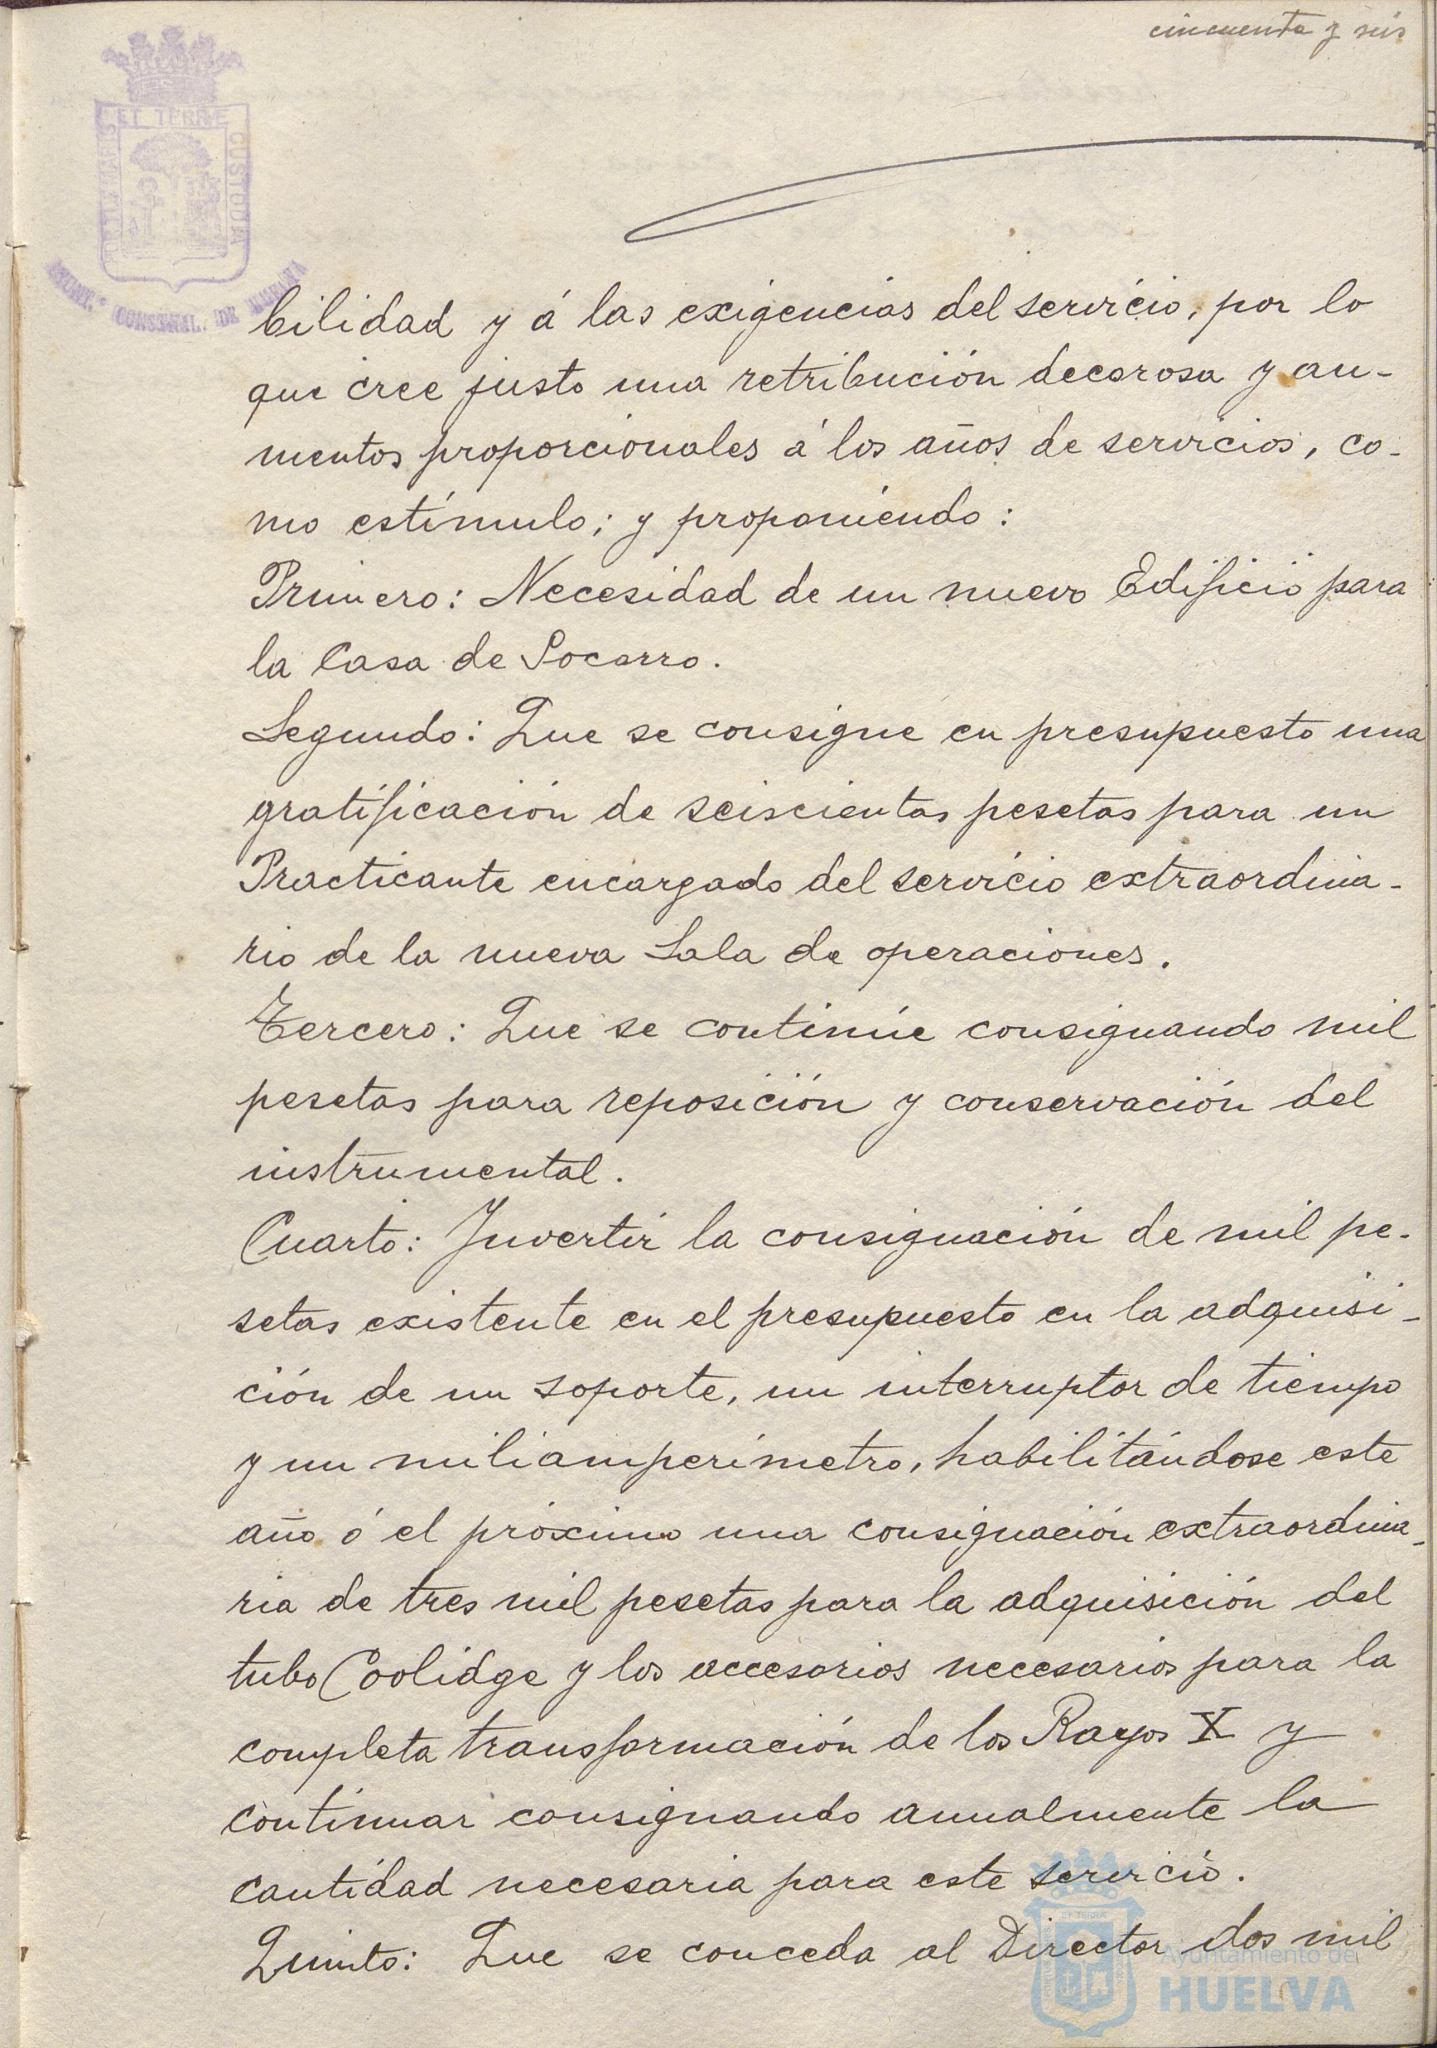 cincuenta y seis
PORTUS MARIS ET TERRÆ CUSTODIA
bilidad y á las exigencias del servicio, por lo
que cree justo una retribución decorosa y au-
mentos proporcionales á los años de servicios, co-
mo estímulo; y proponiendo:
Primero: Necesidad de un nuevo Edificio para
la Casa de Socorro.
Segundo: Que se consigne en presupuesto una
gratificación de seiscientas pesetas para un
Practicante encargado del servicio extraordina-
rio de la nueva Sala de operaciones.
Tercero: Que se continúe consignando mil
pesetas para reposición y conservación del
instrumental.
Cuarto: Invertir la consignación de mil pe-
setas existente en el presupuesto en la adquisi-
ción de un soporte, un interruptor de tiempo
y un miliamperímetro, habilitándose este
año ó el próximo una consignación extraordina-
ria de tres mil pesetas para la adquisición del
tubo Coolidge y los accesorios necesarios para la
completa transformación de los Rayos X y
continuar consignando anualmente la
cantidad necesaria para este servicio.
Quinto: Que se conceda al Director dos mil
Ayuntamiento de
HUELVA